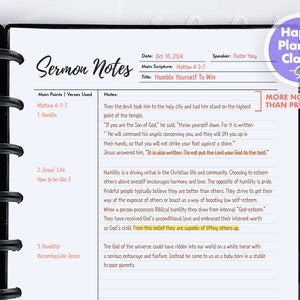 Hap
Plan
Cla
Sermon Notes
Date: Oct. 10, 2024 Speaker: Pastor Yang
Main Scripture: Mattew 4: 5-7
Title: Humble Yourself To Win
Main Points | Verses Used
Notes:
MORE NO
THAN PR
Mattew 4: 5-7
1: Humble
Then the devil took him to the holy city and had him stand on the highest
point of the temple.
"If you are the Son of God," he said, "throw yourself down. For it is written:
" 'He will command his angels concerning you, and they will lift you up in
their hands, so that you will not strike your foot against a stone.'"
Jesus answered him, "It is also written: 'Do not put the Lord your God to the test.'"
2. Jesus' Life
How to be like J
Humility is a driving virtue in the Christian life and community. Choosing to esteem
others above oneself encourages harmony and love. The opposite of humility is pride.
Prideful people typically believe they are better than others. They strive to get their
way at the expense of others or boast as a way of boosting low self-esteem.
When a person possesses Biblical humility they draw from internal "God-esteem."
They have received God's unconditional love and embraced their inherent worth
as God's child. From this belief they are capable of lifting others up.
3. Humility:
Becoming Like Jesus
The God of the universe could have ridden into our world on a white horse with
a serious entourage and fanfare. Instead he came to us as a baby born in a stable
to poor parents.